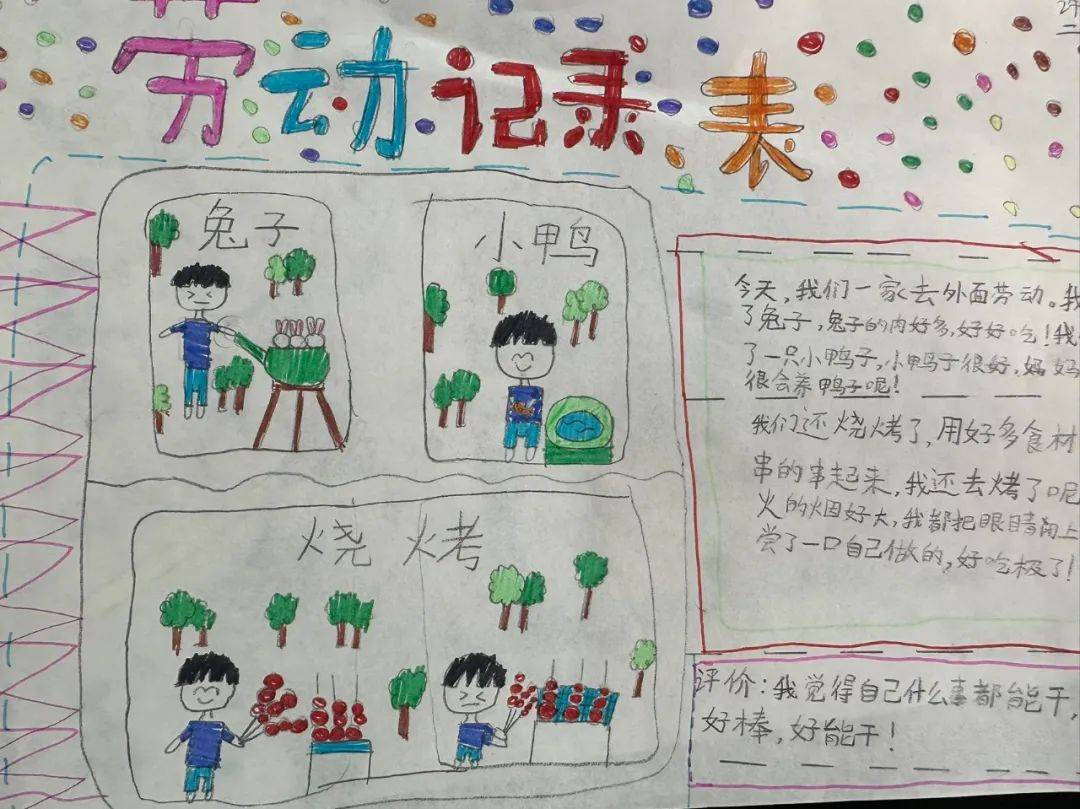 劳动记录表
兔子
小鸭
烧烤
今天，我们一家去外面劳动。我
了兔子，兔子的肉好多，好好吃！我
了一只小鸭子，小鸭子很好，妈妈
很会养鸭子呢！
我们还烧烤了，用好多食材
串的串起来，我还去烤了呢
火的烟好大，我都把眼睛闭上
尝了一口自己做的，好吃极了！
评价：我觉得自己什么事都能干，
好棒，好能干！